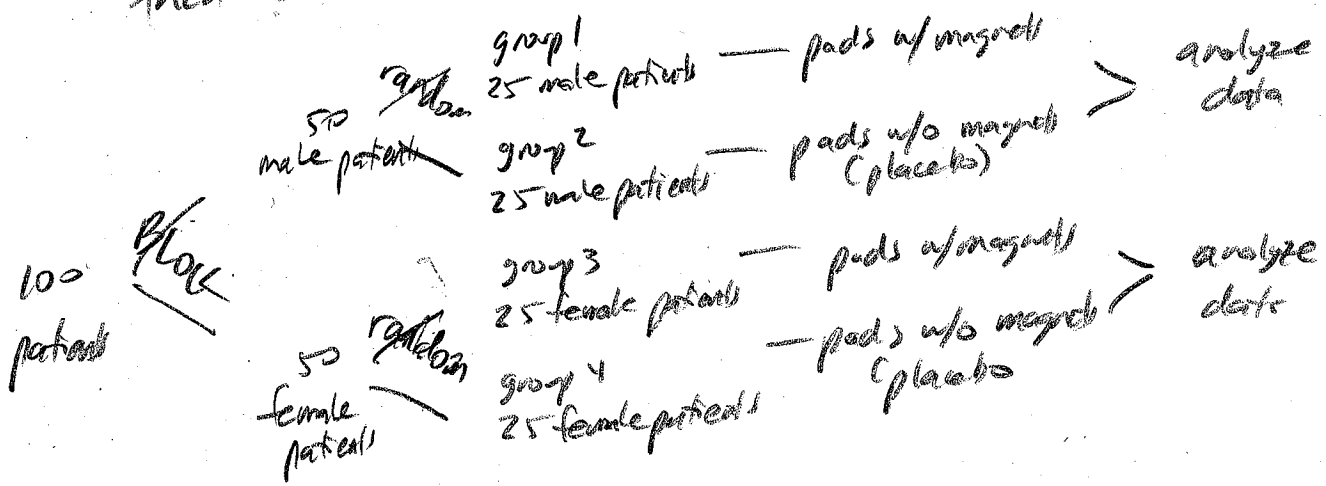 100
patients
Block
50
male patients
random
group 1
25 male patients
pads w/ magnets
group 2
25 male patients
pads w/o magnets
(placebo)
analyze
data
50
female
patients
random
group 3
25 female patients
pads w/ magnets
group 4
25 female patients
pads w/o magnets
(placebo
analyze
data